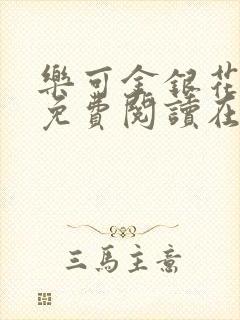 樂可金銀花
免費閱讀在
三馬主意